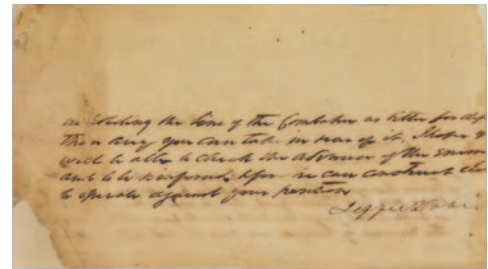 in holding the line of the Combahee as better for def
than any you can take in rear of it. I hope y
will be able to check the advance of the enemy
and to be reinforced before he can construct
to operate against your position
Jeffn Davi